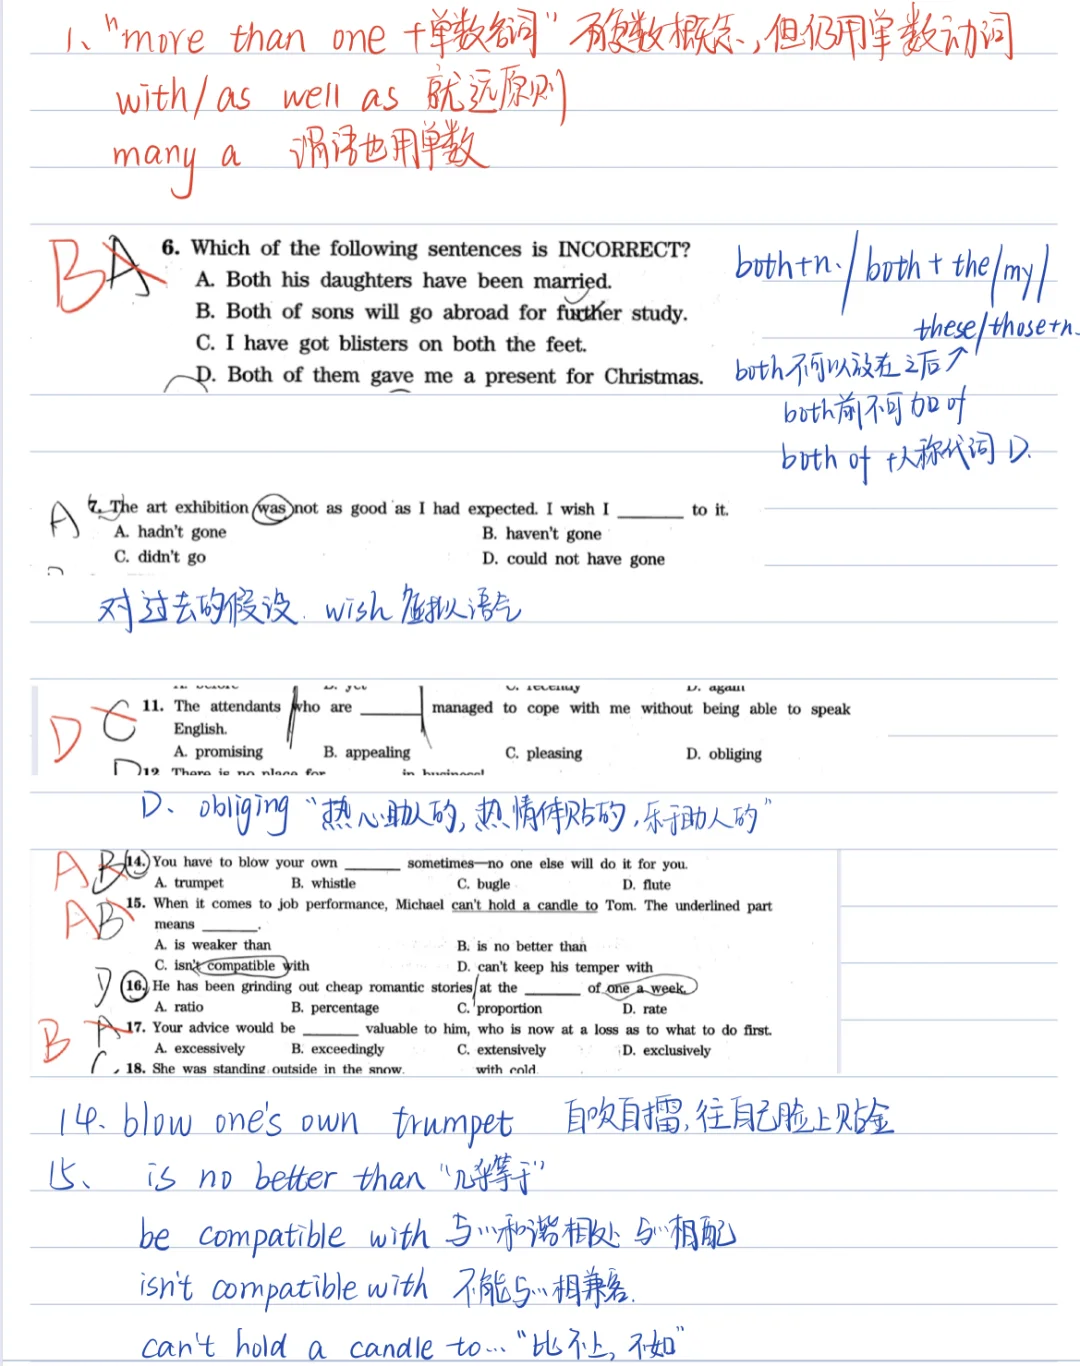 1、"more than one +单数名词" 有复数概念,但仍用单数动词
with/as well as 就远原则
many a 谓语也用单数
B A
6. Which of the following sentences is INCORRECT?
A. Both his daughters have been married.
B. Both of sons will go abroad for further study.
C. I have got blisters on both the feet.
D. Both of them gave me a present for Christmas.
both+n./both + the/my/
these/those+n.
both不可以放在之后
both前不可加of
both of +人称代词 D.
A
7. The art exhibition was not as good as I had expected. I wish I ______ to it.
A. hadn't gone B. haven't gone
C. didn't go D. could not have gone
对过去的假设. wish 虚拟语气
A. before B. yet C. recently D. again
D C
11. The attendants who are ______ managed to cope with me without being able to speak
English.
A. promising B. appealing C. pleasing D. obliging
D
12. There is no place for ______ in business!
D、obliging "热心助人的,热情体贴的,乐于助人的"
A B
14. You have to blow your own ______ sometimes—no one else will do it for you.
A. trumpet B. whistle C. bugle D. flute
A B
15. When it comes to job performance, Michael can't hold a candle to Tom. The underlined part
means ______.
A. is weaker than B. is no better than
C. isn't compatible with D. can't keep his temper with
D
16. He has been grinding out cheap romantic stories at the ______ of one a week.
A. ratio B. percentage C. proportion D. rate
B A
17. Your advice would be ______ valuable to him, who is now at a loss as to what to do first.
A. excessively B. exceedingly C. extensively D. exclusively
C
18. She was standing outside in the snow, ______ with cold.
14. blow one's own trumpet 自吹自擂,往自己脸上贴金
15、 is no better than "几乎等于"
be compatible with 与…和谐相处 与…相配
isn't compatible with 不能与…相兼容.
can't hold a candle to… "比不上,不如"